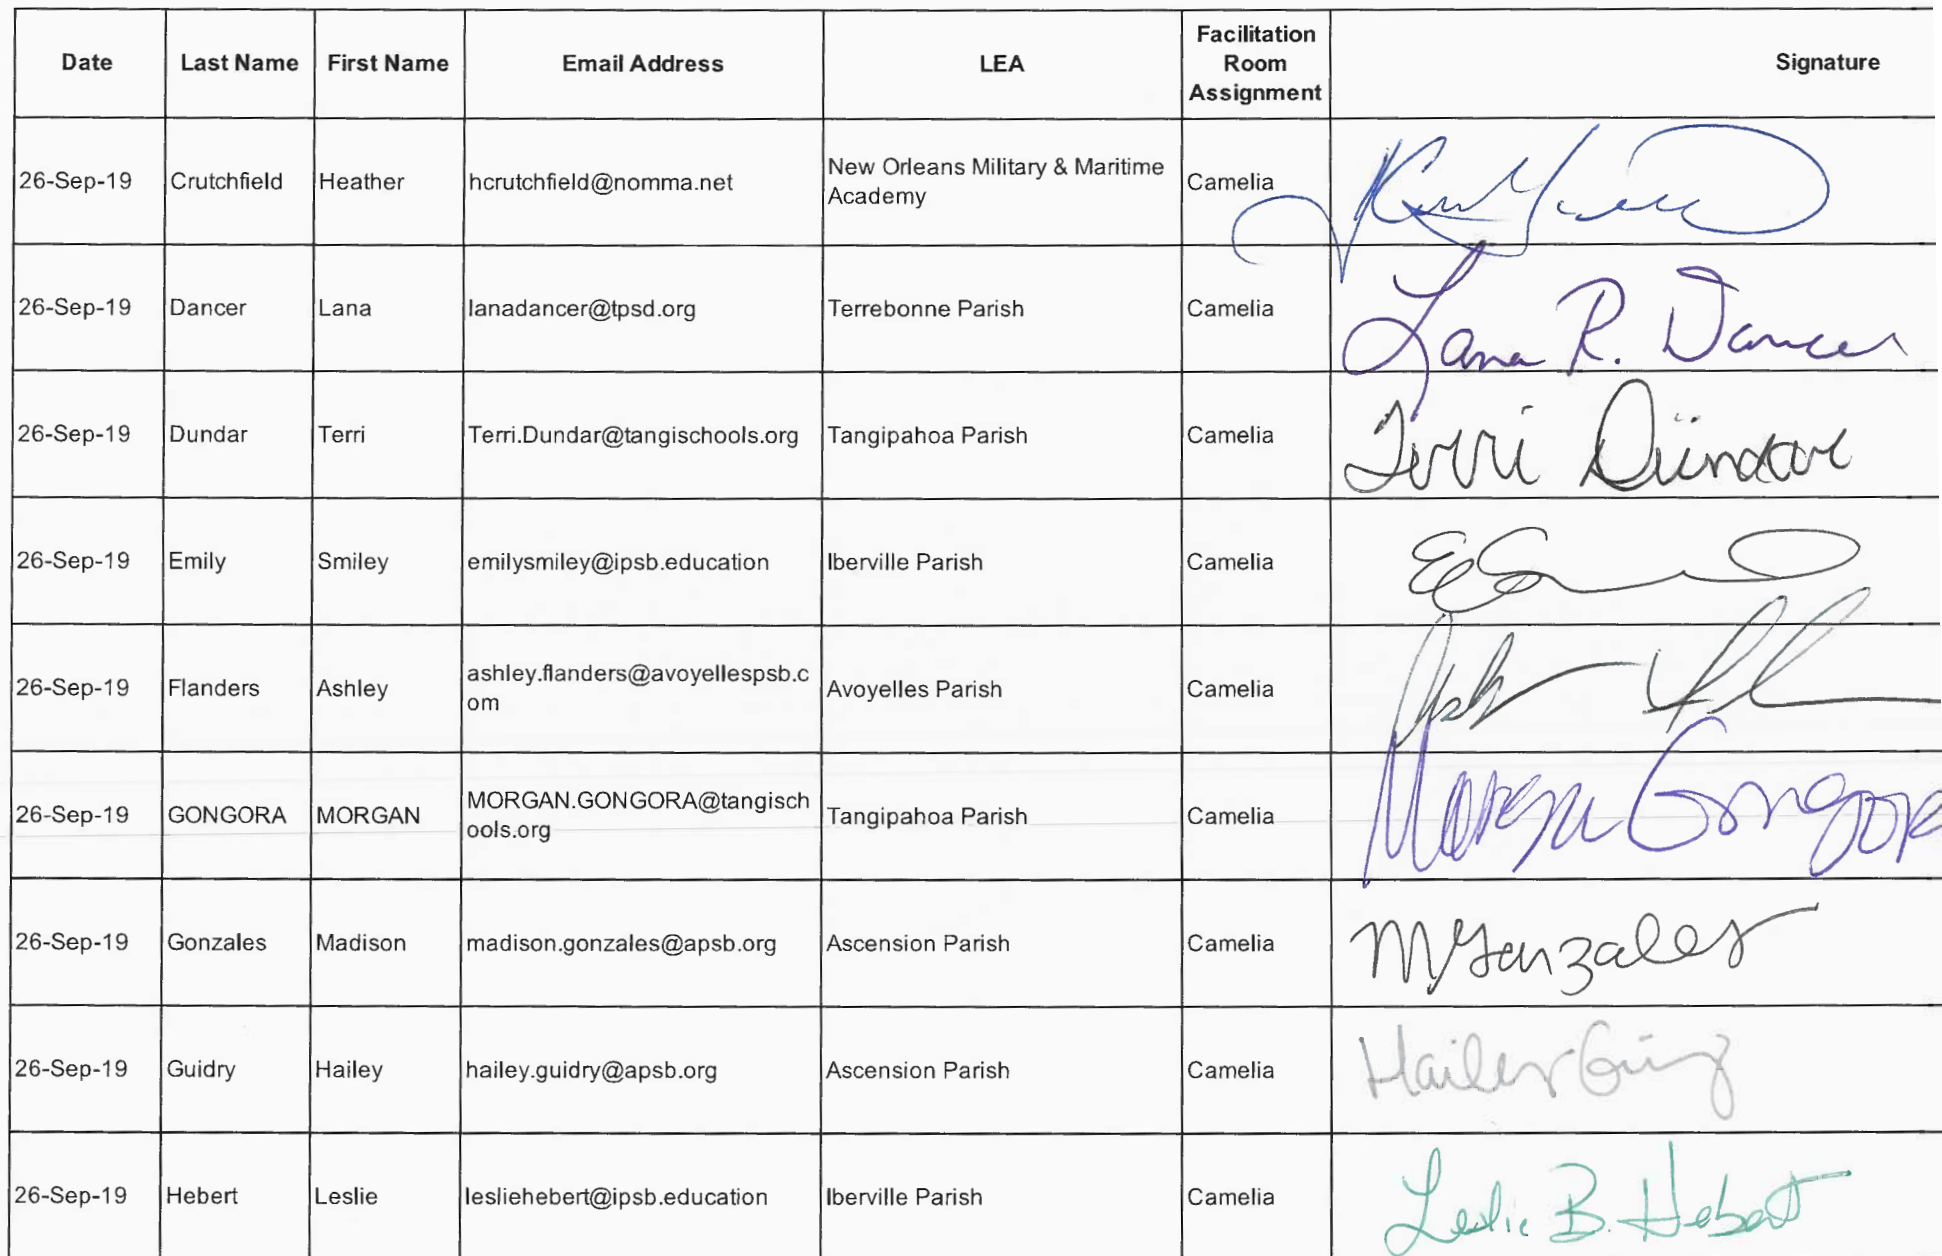 Date Last Name First Name Email Address LEA Facilitation Room Assignment Signature
26-Sep-19 Crutchfield Heather hcrutchfield@nomma.net New Orleans Military & Maritime Academy Camelia
26-Sep-19 Dancer Lana lanadancer@tpsd.org Terrebonne Parish Camelia Lana R. Dancer
26-Sep-19 Dundar Terri Terri.Dundar@tangischools.org Tangipahoa Parish Camelia Terri Dündar
26-Sep-19 Emily Smiley emilysmiley@ipsb.education Iberville Parish Camelia
26-Sep-19 Flanders Ashley ashley.flanders@avoyellespsb.com Avoyelles Parish Camelia
26-Sep-19 GONGORA MORGAN MORGAN.GONGORA@tangischools.org Tangipahoa Parish Camelia Morgan Gongora
26-Sep-19 Gonzales Madison madison.gonzales@apsb.org Ascension Parish Camelia MGonzales
26-Sep-19 Guidry Hailey hailey.guidry@apsb.org Ascension Parish Camelia Hailey
26-Sep-19 Hebert Leslie lesliehebert@ipsb.education Iberville Parish Camelia Leslie B. Hebert